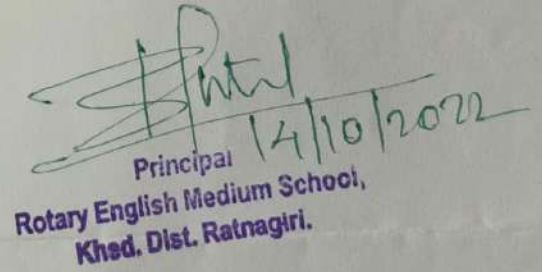 Patil
14/10/2022
Principal
Rotary English Medium School,
Khed. Dist. Ratnagiri.